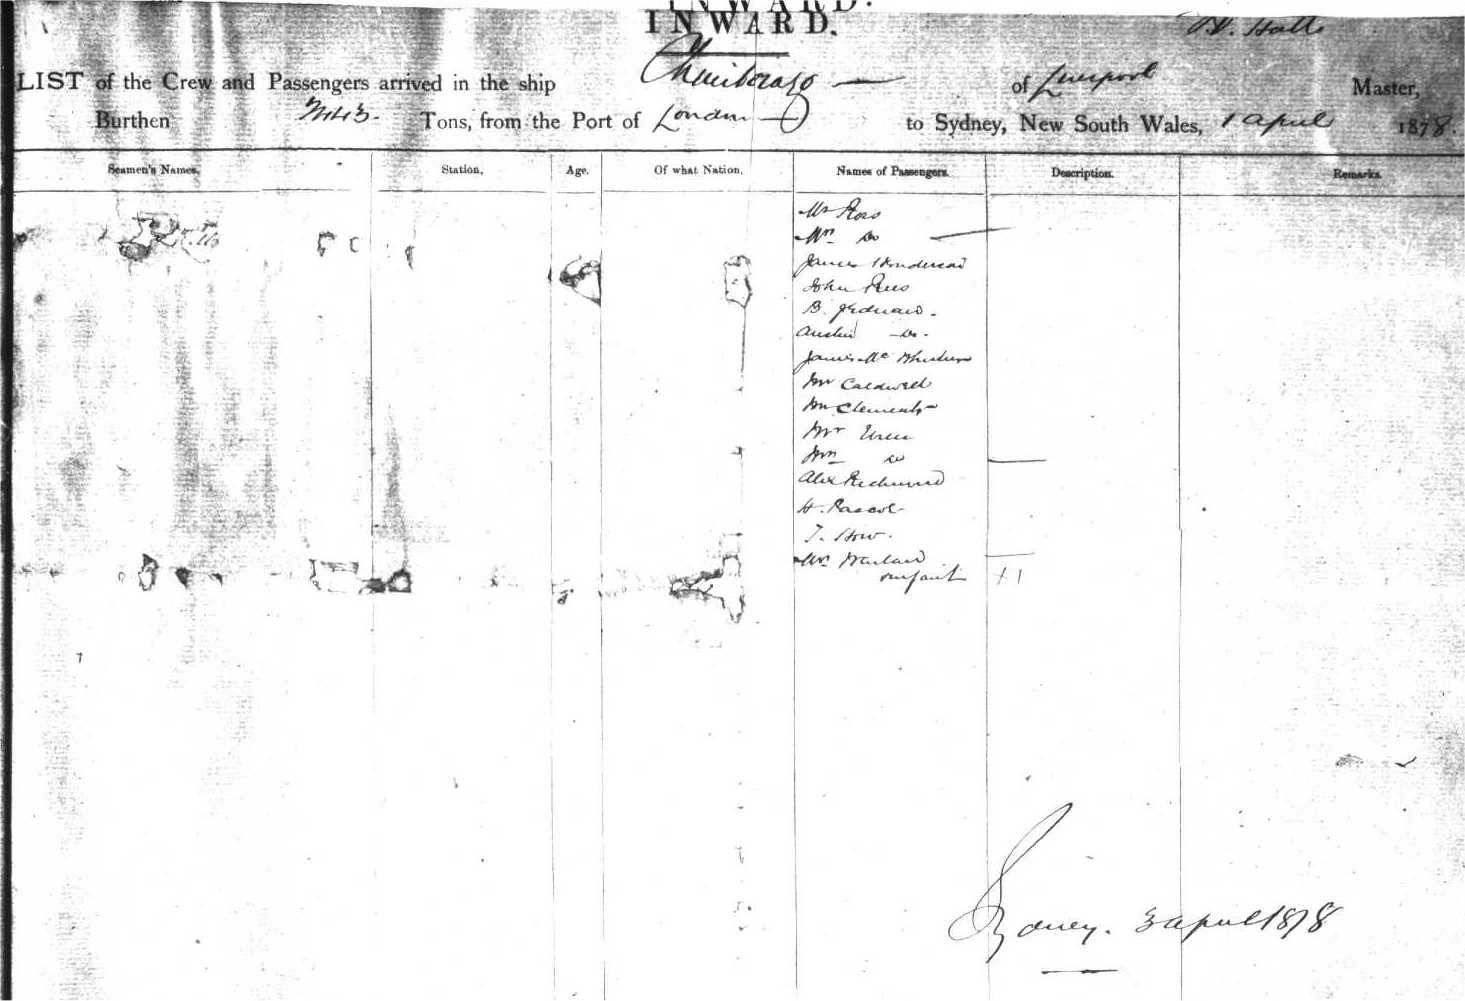 INWARD.
INWARD.
W. Hall
LIST of the Crew and Passengers arrived in the ship Chimborazo of Liverpool Master,
Burthen 2443 Tons, from the Port of London to Sydney, New South Wales, 1 April 1878.
Seamen's Names. Station. Age. Of what Nation. Names of Passengers. Description. Remarks.
Mr Ross
Mrs Do
James Henderson
John Rees
B.
Austin Do.
James Mc
Mr Caldwell
Mr Clements
Mr Uren
Mrs Do
Alex Richmond
H. Pascoe
T. How.
Mrs
infant +1
Sydney. 3 April 1878